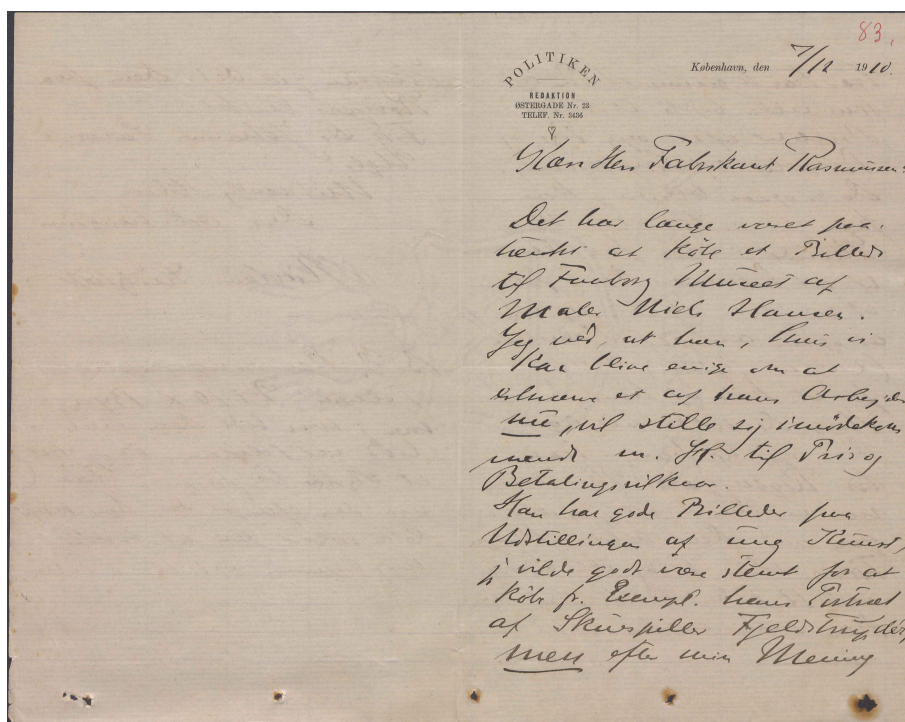 83.
POLITIKEN
REDAKTION
ØSTERGADE Nr. 23
TELEF. Nr. 3436
København, den 7/12 1910.
Kære Herr Fabrikant Rasmussen.
Det har længe været paa-
tænkt at købe et Billede
til Faaborg Museet af
Maler Niels Hansen.
Jeg ved, at han, hvis vi
kan blive enige om at
erhverve et af hans Arbejder
nu, vil stille sig imødekom
mende m. H. t. til Pris og
Betalingsvilkaar.
Han har gode Billeder paa
Udstillingen af ung Kunst,
jg vilde godt være stemt for at
købe fr. Exempl. hans Portræt
af Skuespiller
men efter min Mening